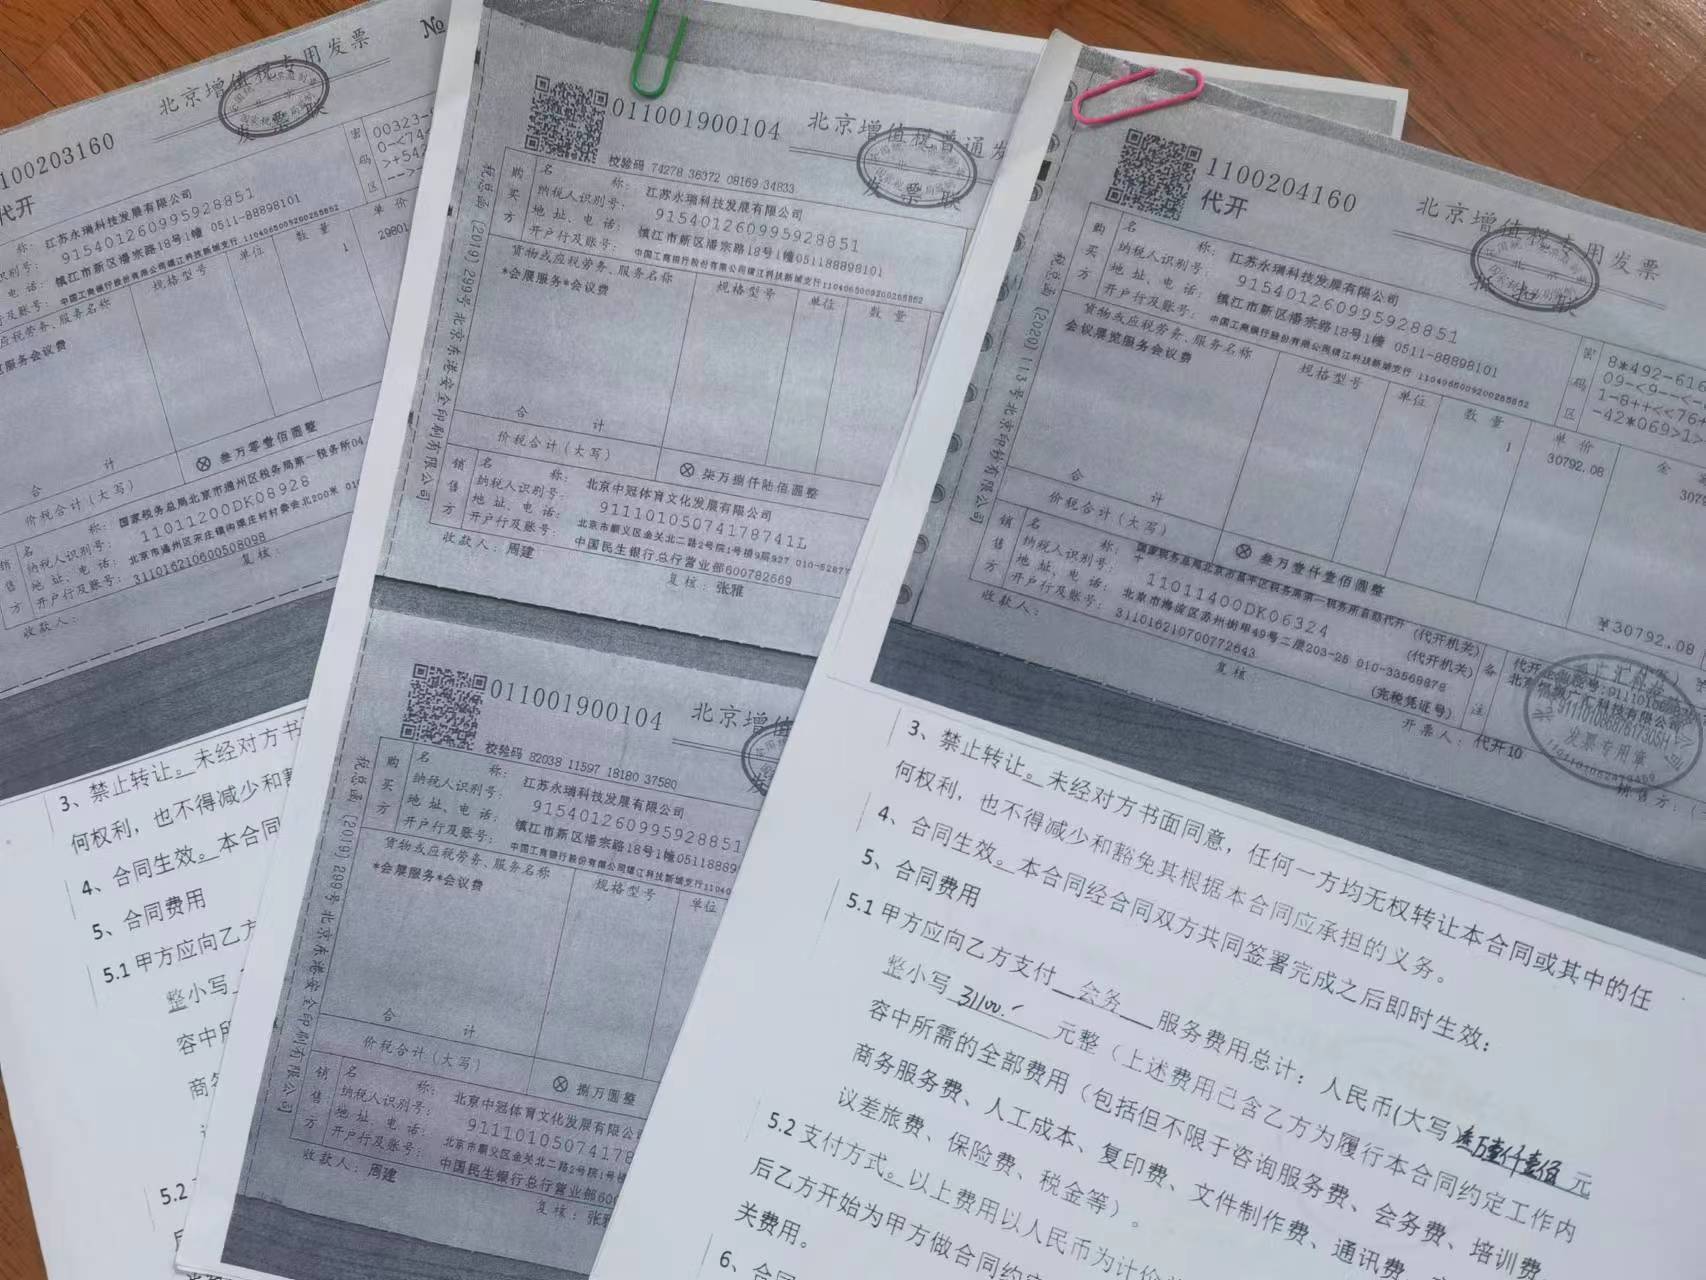 北京增值税专用发票
№
发票联
1100203160
代开
密码区
00323-
0-<74
>+542
-->
称：江苏永瑞科技发展有限公司
识别号：915401260995928851
电话：镇江市新区潘宗路18号1幢 0511-88898101
账号：中国工商银行股份有限公司镇江科技新城支行 1104065009200265852
应税劳务、服务名称
规格型号
单位
数量
单价
览服务会议费
1
29801
合计
价税合计(大写)
⊗ 叁万零壹佰圆整
销售方
名称：国家税务总局北京市通州区税务局第一税务所04
纳税人识别号：11011200DK08928
地址、电话：北京市通州区宋庄镇
村村委会北200米
开户行及账号：311016210600508098
收款人：
复核：
3、禁止转让。未经对方书
何权利，也不得减少和
4、合同生效。本合同
5、合同费用
5.1 甲方应向乙方
整小写
容中所
商务
5.2
011001900104
北京增值税普通发
发票联
校验码 74278 36372 08169 34833
税总函〔2019〕299号北京东港安全印刷有限公司
购买方
名称：江苏永瑞科技发展有限公司
纳税人识别号：915401260995928851
地址、电话：镇江市新区潘宗路18号1幢051188898101
开户行及账号：中国工商银行股份有限公司镇江科技新城支行1104065009200265852
货物或应税劳务、服务名称
规格型号
单位
数量
*会展服务*会议费
合计
价税合计(大写)
⊗ 柒万捌仟陆佰圆整
销售方
名称：北京中冠体育文化发展有限公司
纳税人识别号：91110105074178741L
地址、电话：北京市顺义区金关北二路2号院1号楼9层927 010-52877
开户行及账号：中国民生银行总行营业部600782669
收款人：周建
复核：张雅
011001900104
北京增值
校验码 82038 11597 18180 37580
税总函〔2019〕299号北京东港安全印刷有限公司
购买方
名称：江苏永瑞科技发展有限公司
纳税人识别号：915401260995928851
地址、电话：镇江市新区潘宗路18号1幢0511889
开户行及账号：中国工商银行股份有限公司镇江科技新城支行11040
货物或应税劳务、服务名称
规格型号
单位
*会展服务*会议费
合计
价税合计(大写)
⊗ 捌万圆整
销售方
名称：北京中冠体育文化发展有限公
纳税人识别号：911101050741787
地址、电话：北京市顺义区金关北二路2号院1号楼
开户行及账号：中国民生银行总行营业部600
收款人：周建
复核：张雅
1100204160
代开
北京增值税专用发票
抵扣联
税总函〔2020〕113号北京印钞有限公司
购买方
名称：江苏永瑞科技发展有限公司
纳税人识别号：915401260995928851
地址、电话：镇江市新区潘宗路18号1幢 0511-88898101
开户行及账号：中国工商银行股份有限公司镇江科技新城支行 1104065009200265852
密码区
8*492-616
09-<9--<-
1-8++<<76+
-42*069>1>
货物或应税劳务、服务名称
规格型号
单位
数量
单价
会议展览服务会议费
1
30792.08
合计
￥30792.08
价税合计(大写)
⊗ 叁万壹仟壹佰圆整
销售方
名称：国家税务总局北京市昌平区税务局第一税务所自助代开 (代开机关)
纳税人识别号：11011400DK06324 (代开机关)
地址、电话：北京市海淀区苏州街甲49号二层203-25 010-33568878
开户行及账号：311016210700772643 (完税凭证号)
备注
收款人：
复核：
开票人：代开10
销售方：
发票专用章
3、禁止转让。未经对方书面同意，任何一方均无权转让本合同或其中的任
何权利，也不得减少和豁免其根据本合同应承担的义务。
4、合同生效。本合同经合同双方共同签署完成之后即时生效：
5、合同费用
5.1 甲方应向乙方支付 会务 服务费用总计：人民币(大写)叁万壹仟壹佰元
整小写 31100. 元整（上述费用已含乙方为履行本合同约定工作内
容中所需的全部费用（包括但不限于咨询服务费、会务费、培训费、
商务服务费、人工成本、复印费、文件制作费、通讯费、
议差旅费、保险费、税金等）。
5.2 支付方式。以上费用以人民币为计价
后乙方开始为甲方做合同约定
关费用。
6、合同